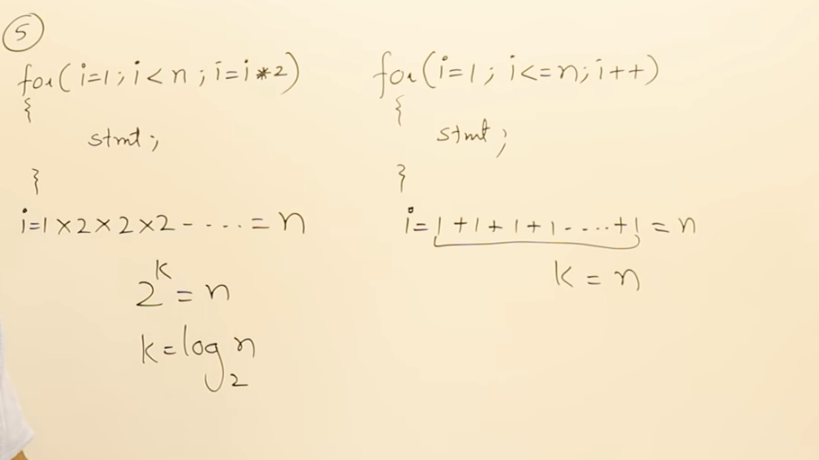 5
for(i=1; i<n; i=i*2)
{
stmt;
}
i=1×2×2×2-....=n
2^k=n
k=log₂n
for(i=1; i<=n; i++)
{
stmt;
}
i=1+1+1+1-....+1=n
k=n